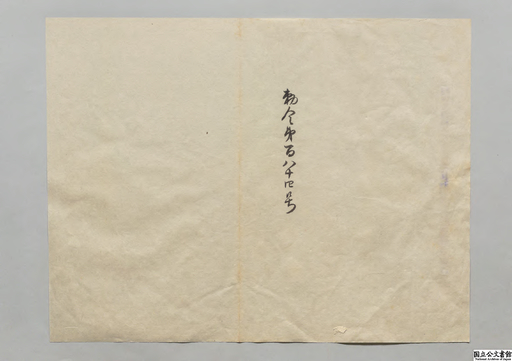 勅令第百八十四号
国立公文書館
National Archives of Japan